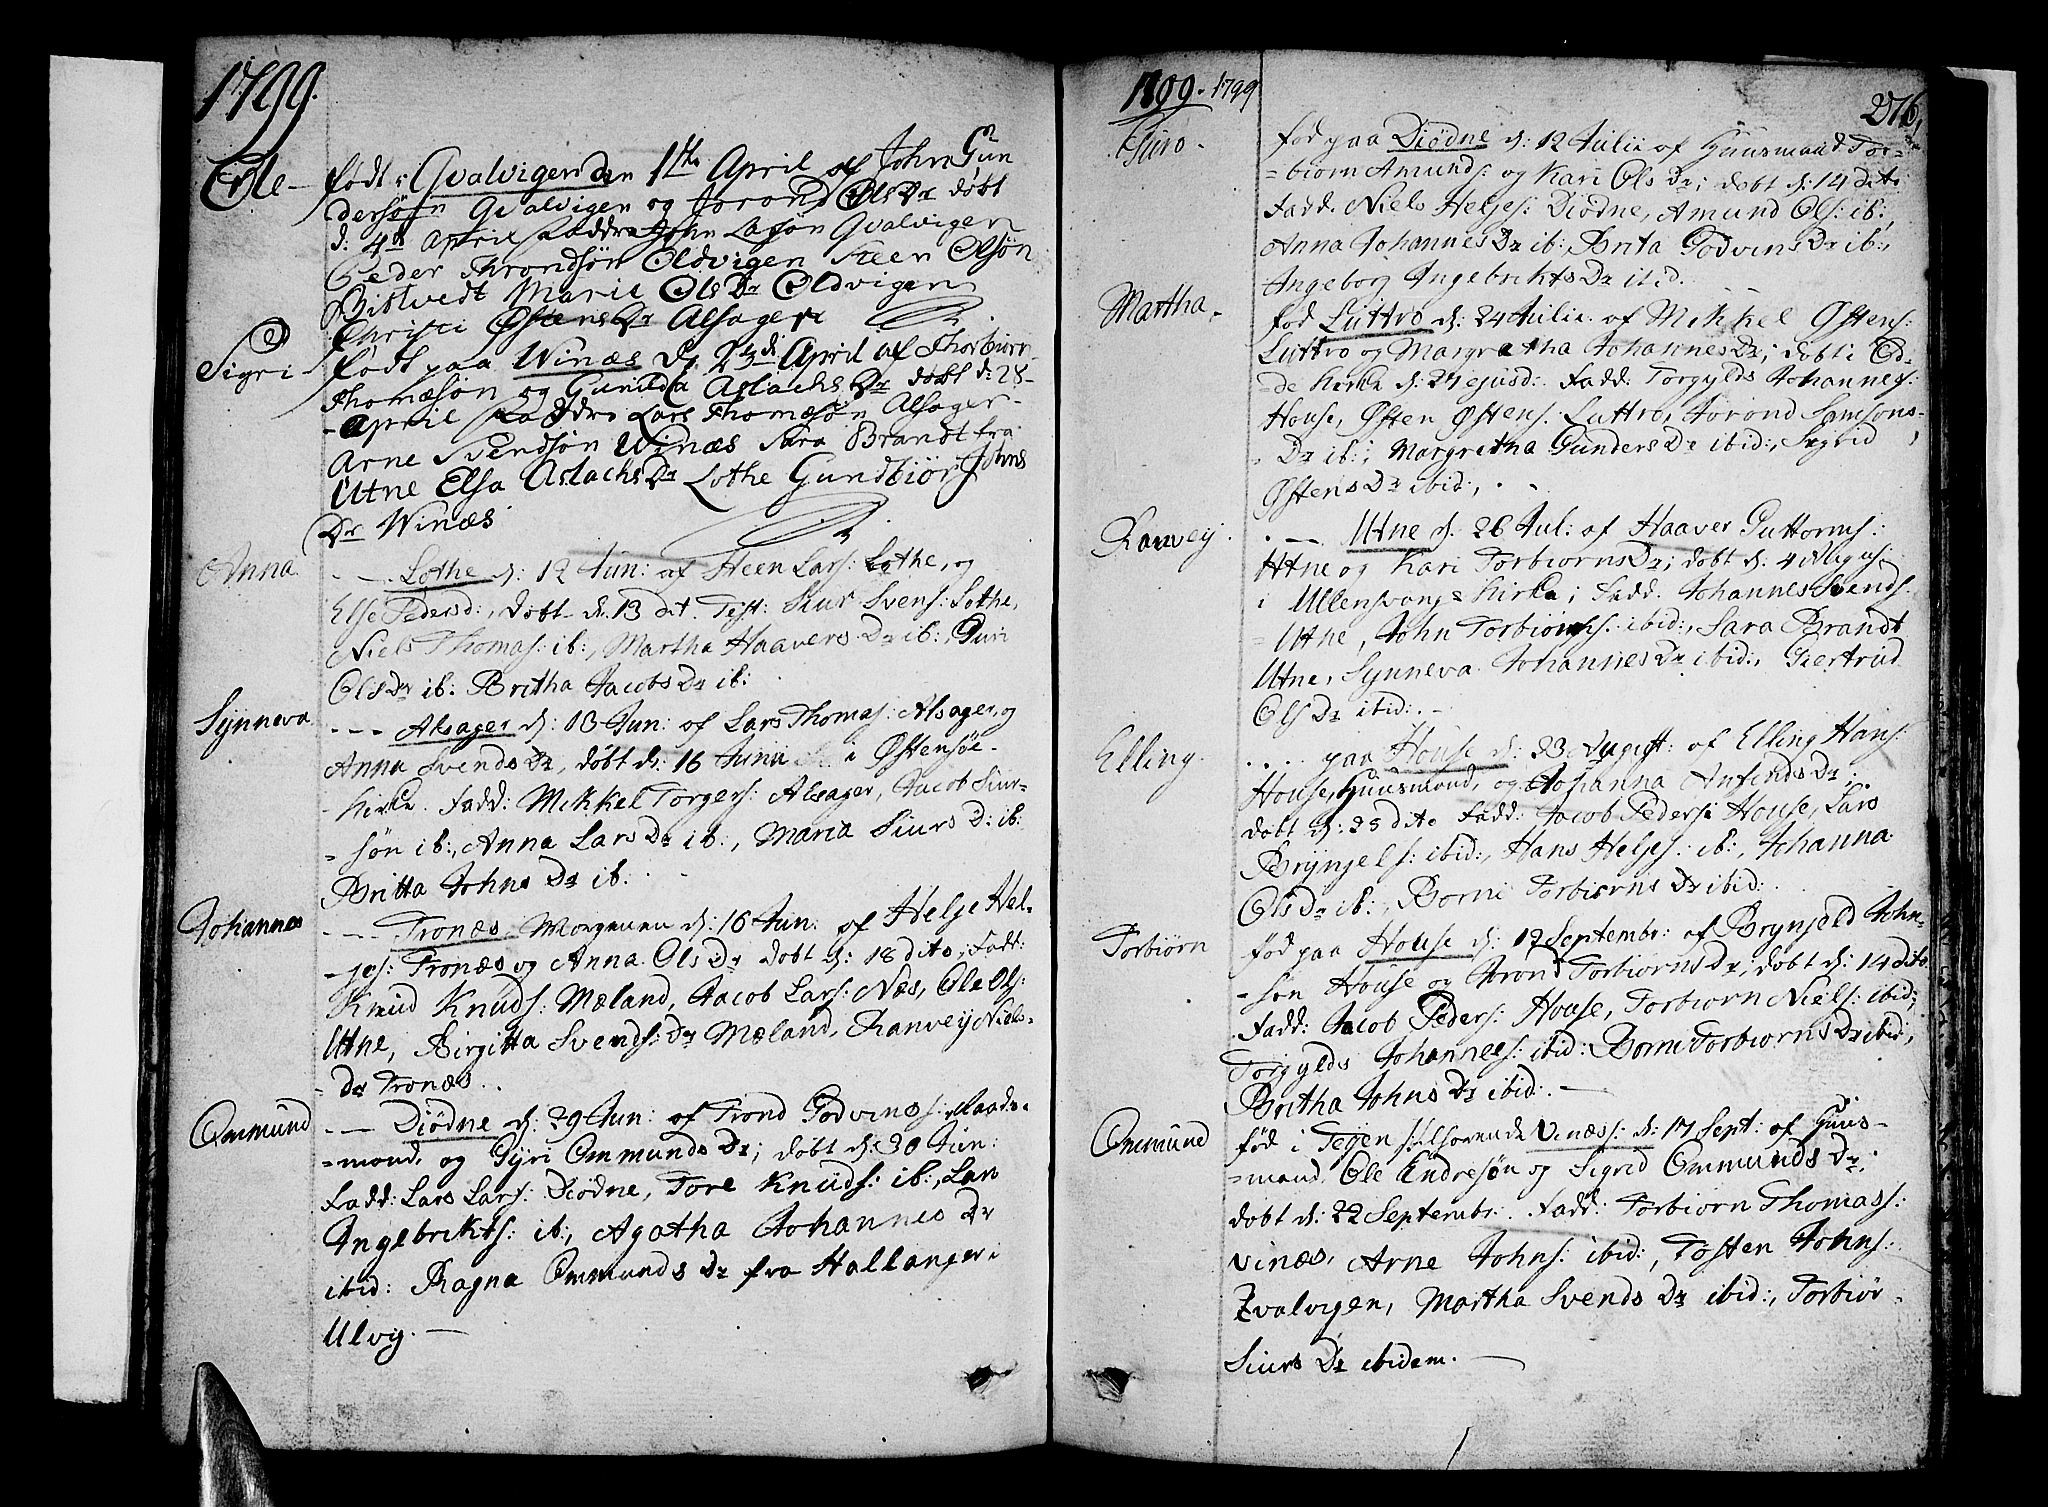 1799.
Erle
født i Qvalvigen den 1ste April af John Gun
dersøn Qvalvigen og Jorond Ols Dr døbt
d: 4de April Faddre John Lasøn Qvalvigen
Peder Throndsøn Oldvigen Steen Olsøn
Bistvedt Marie Ols Dr Oldvigen
Christi Østens Dr Alsager
Sigri
født paa Winæs d April af Thorbiørn
Thomæsøn og Gunilda Aslachs Dr døbt d: 28
April Faddre Lars Thomæsøn Alsager
Arne Svendsøn Winæs Sara Brandt fra
Utne Elsa Aslachs Dr Lothe Gundbiør Johns
Dr Winæs
Anna
- - - Lothe d: 12 Jun: af Steen Lars: Lothe, og
Else Pedersd:, døbt d: 13 dit. Test: Siur Svens: Lothe,
Niels Thomas: ib:, Martha Haavers Dr ib:, Guri
Ols Dr ib: Britha Jacobs Dr ib:
Synneva
- - - Alsager d: 13 Jun: af Lars Thomas: Alsager, og
Anna Svends Dr, døbt d: 16 Junii i Østensøe
Kirke. Fadd: Mikkel Torgers: Alsager, Jacob Siur-
= søn ib:, Anna Lars Dr ib:, Maria Siurs D: ib:
Britta Johns Dr ib:
Johannes
- - - Tronæs, Morgenen d: 16 Jun: af Helge Hel-
- jes: Tronæs og Anna Ols Dr døbt d: 18 dito, Fadd:
Knud Knuds: Mæland, Jacob Lars: Næs, Ole Ols:
Utne, Birgitta Svends: Dr Mæland, Ranveij Niels-
- Dr Tronæs.
Ommund
- - - Diödne d: 29 Jun: af Trond Godvins: Raads-
=mand, og Gyri Ommunds Dr; døbt d: 30 Jun:
Fadd: Lars Lars: Diödne, Tore Knuds: ib:, Lars
Ingebrikts: ib:, Agatha Johannes Dr
ibid: Ragna Ommunds Dr fra Hallanger i
Ulvig. -
1799. 1799
276
Guro -
fød paa Diödne d: 12 Julii af Huusmand Tor-
=biorn Amunds: og Kari Ols Dr; døbt d: 14 dito
Fadd. Niels Heljes: Diödne, Amund Ols: ib:,
Anna Johannes Dr ib:, Brita Godvins Dr ib:,
Ingeborg Ingebrikts Dr ibid.
Martha -
fød Luttro d: 24 Julii. af Mikkel Østens:
Luttro og Margretha Johannes Dr; døbt i Od-
=de Kirke d: 27 ejusd: Fadd. Torgylds Johannes:
House, Østen Østens: Luttro, Jorond Samsons-
= Dr ib:; Margretha Gunders Dr ibid:, Sigrid
Østens Dr ibid:, . -
Ranveij.
. - - Utne d: 26 Jul: af Haaver Guttorms:
Utne og Kari Torbiorns Dr; døbt d: 4 Augus:
i Ullensvangs Kirke; Fadd. Johannes Svends:
= Utne, John Torbiorns: ibid:, Sara Brandt
Utne, Synneva Johannes Dr ibid:, Giertrud
Ols Dr ibid:. -
Elling.
. . . . paa House d: 23 August: af Elling Hans:
House, Huusmand, og Johanna Anfinds Dr:
døbt d: 25 dito Fadd: Jacob Peders: House, Lars
Brynjels: ibid:, Hans Heljes: ib:, Johanna
Ols Dr ib:, Borni Torbiorns Dr ibid:
Torbiörn
fød paa House d: 12 Septembr: af Brynjeld John-
- søn House og Trond Torbiorns Dr; døbt d: 14 dito
Fadd: Jacob Peders: House, Torbiorn Niels: ibid;
Torgylds Johannes: ibid: Borni Torbiorns Dr ibid:,
Britha Johns Dr ibid:. -
Ommund
fød i Teijen Vinæs: d: 17 Sept: af Huus-
=mand Ole Endresøn og Sigrid Ommunds Dr;
døbt d: 22 Septembr: Fadd: Torbiorn Thomas:
Vinæs, Arne Johns: ibid:, Tosten Johns:
Qvalvigen, Martha Svends Dr ibid:, Torbiör
Siurs Dr ibidem. -